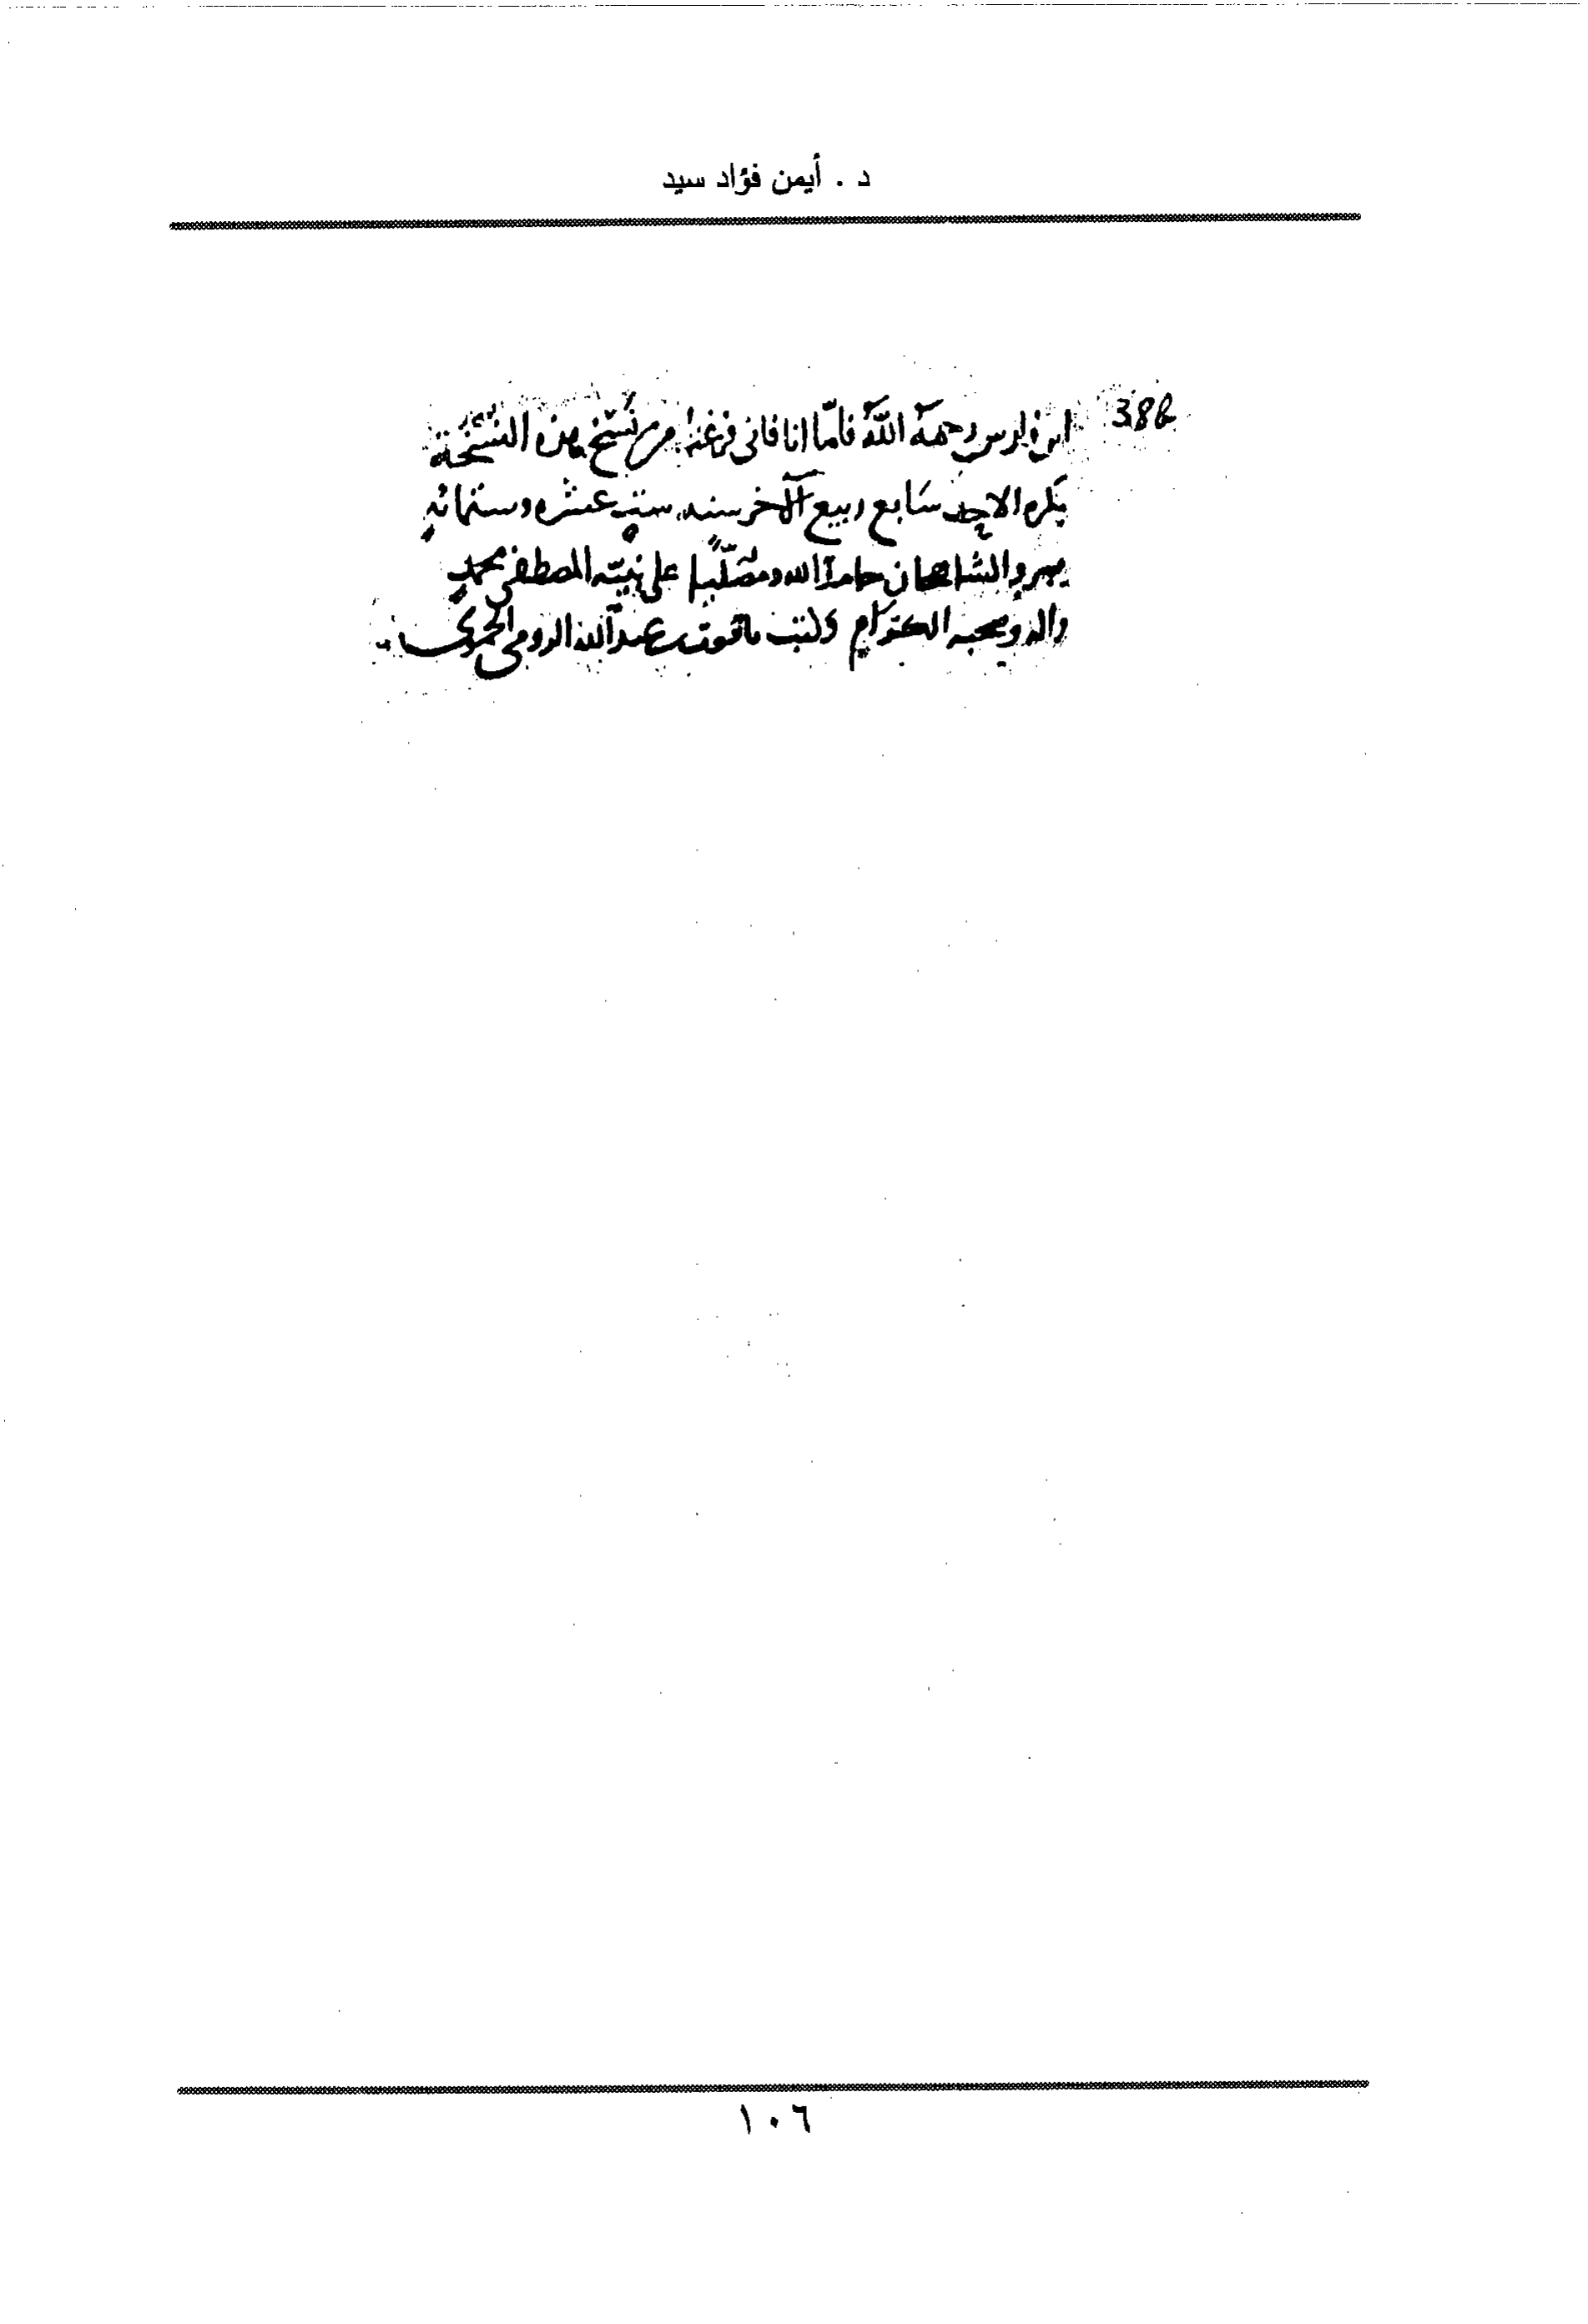 د . أيمن فؤاد سيد
388
ابن فارس رحمه اللّٰه فامّا انا فانى فرغت من نسخ هذه النسخة
بكره الاحد سابع ربيع الآخر سنه ست عشره وستمائه
بمرو الشاهجان حامدا لله ومصلّيا على نبيّه المصطفى محمد
واله وصحبه الكرام وكتب ياقوت بن عبد الله الرومى الحموى
١٠٦